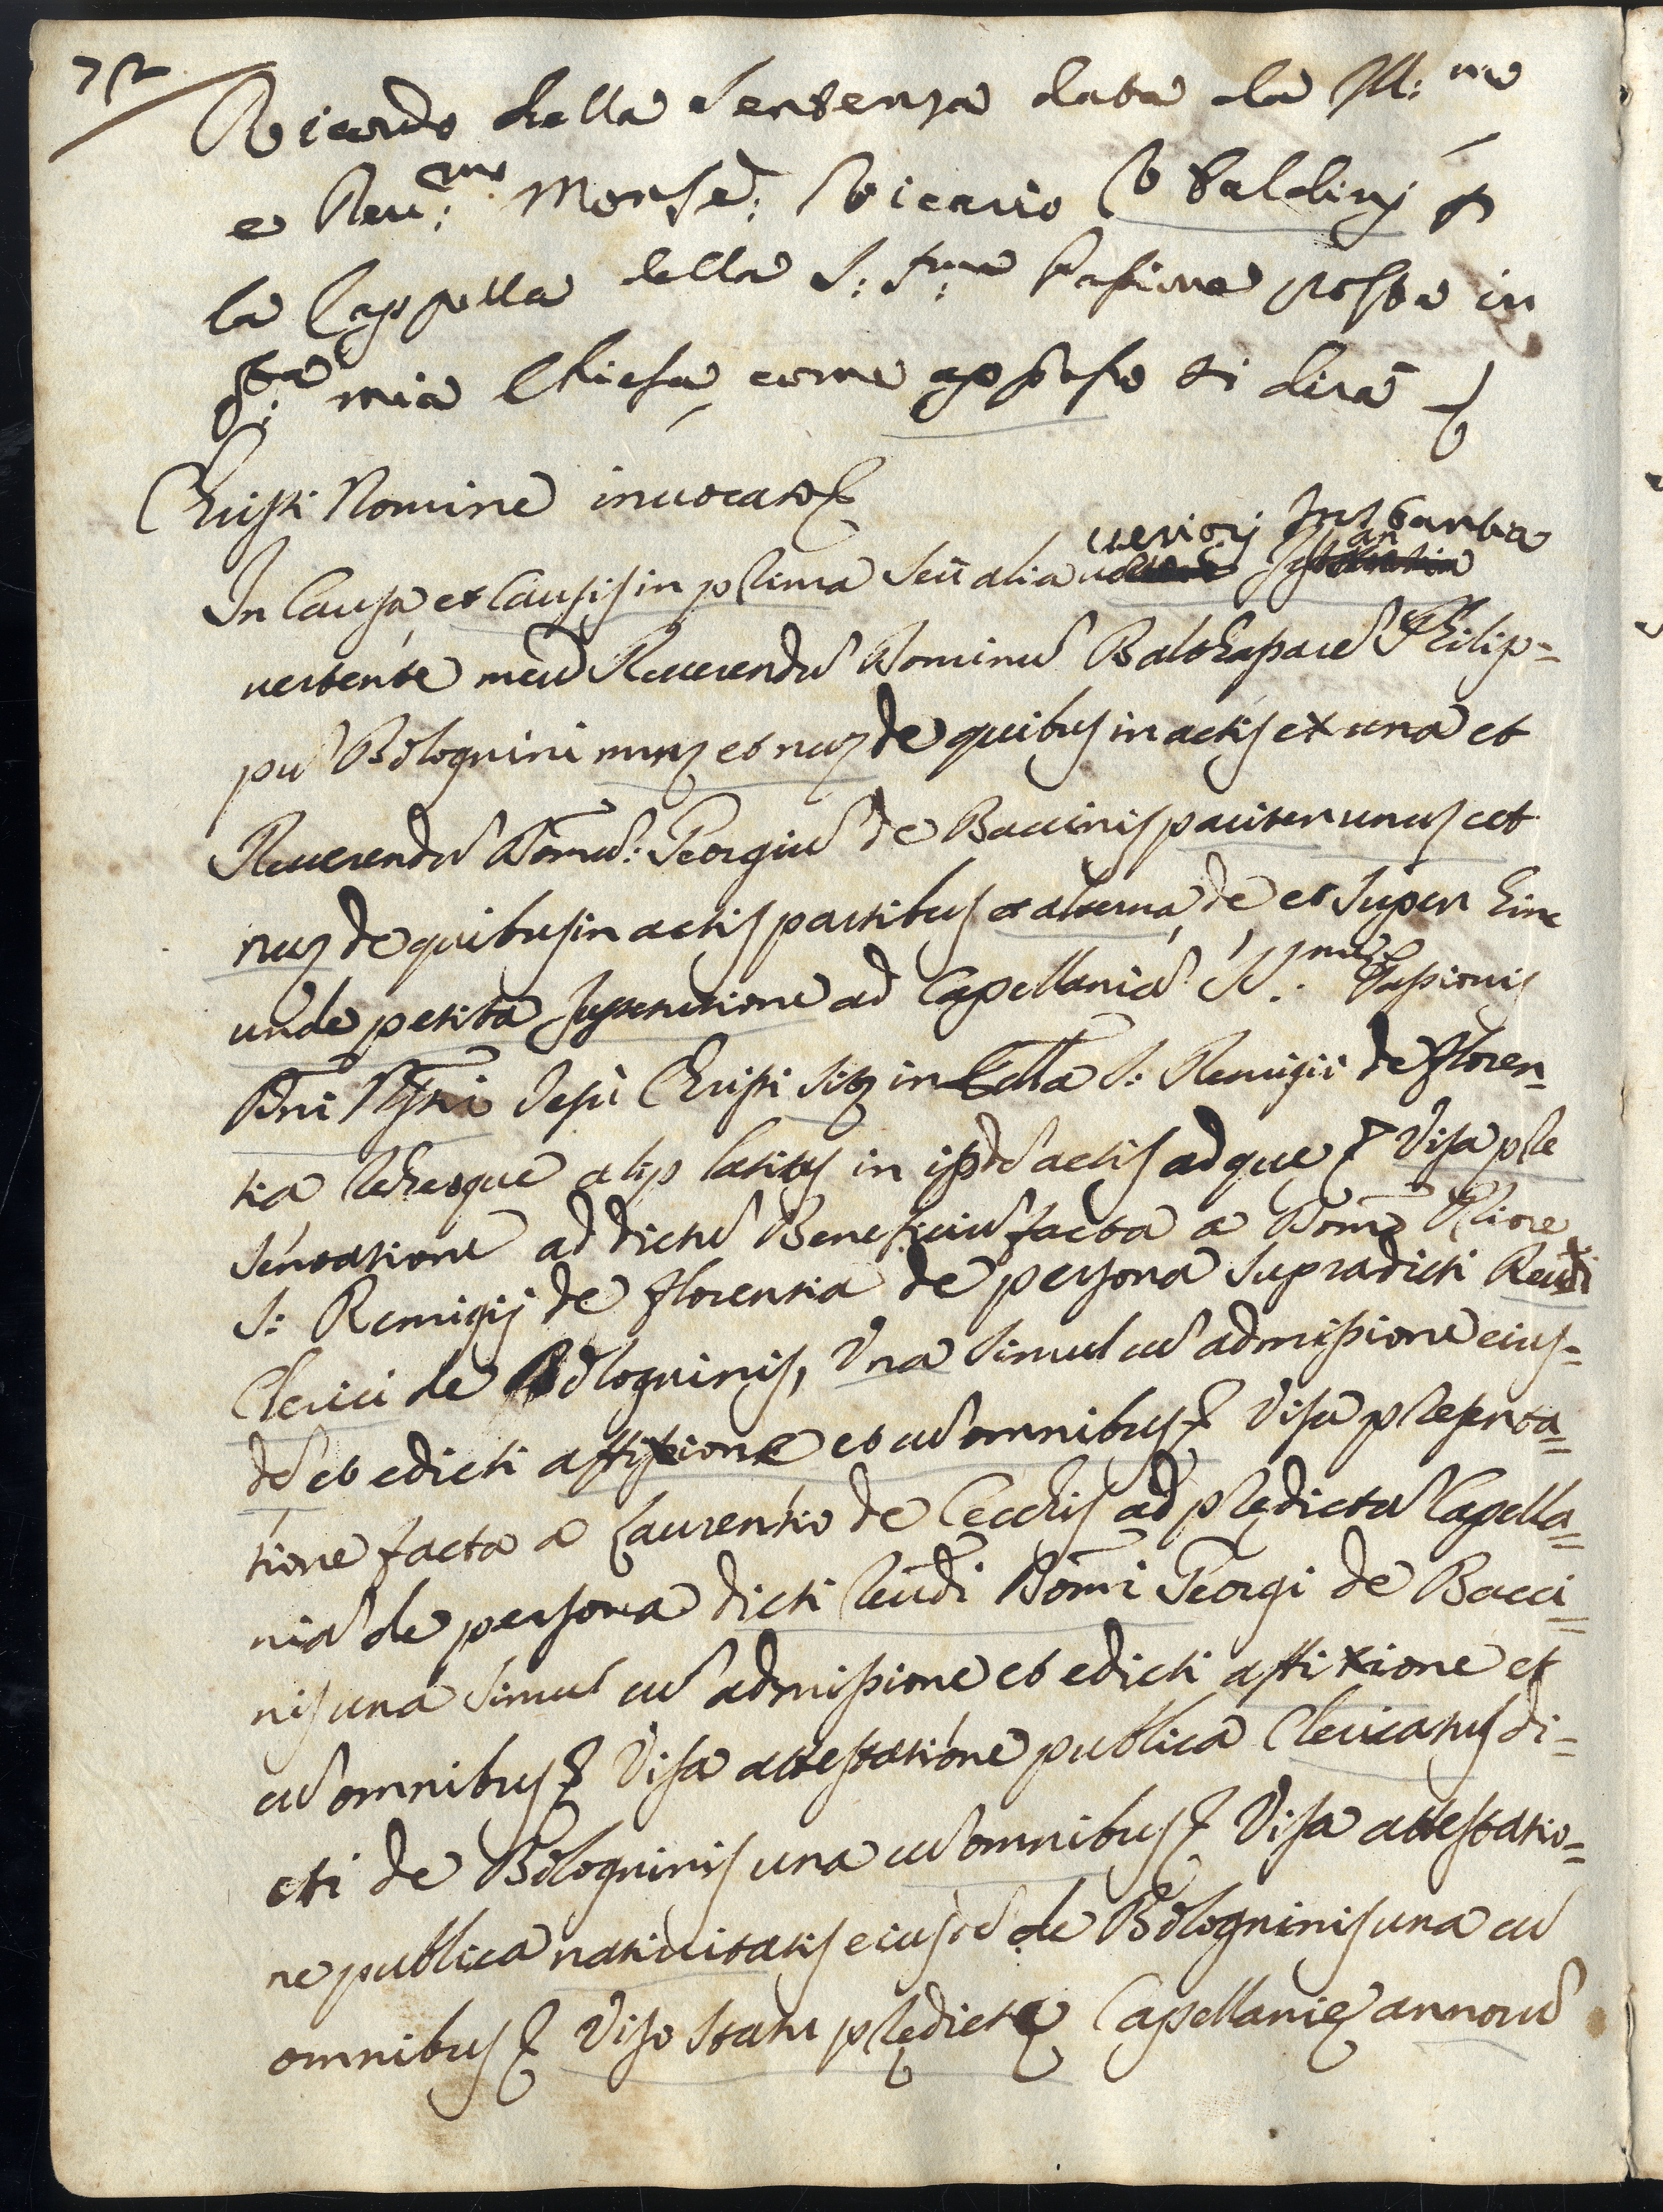 72
Ricordo della Sentenza data da Ill:mo
e Reu:mo Monse: Vicario Vbaldinj p
la Cappella della S:Sma Passione posta in
qta mia Chiesa, come appresso si dirà
Christi Nomine inuocato &
ueriorj Instantia
In Causa, et Causis in prima Seu alia
uertente inter Reuerendu Dominu Balthasare Philip=
pu Bolognini nunc et nuc de quibus in actis ex una et
Reuerendu Domu: Georgiu de Baccinis pariter unus et
nuc de quibus in actis partibus ex altera, de et Super hinc
unde petita Institutione ad Capellania SS.me Passionis
Dni Nostri Jesu Christi sitç in Ecclia S: Remigii de floren=
tia Rebusque alijs latius in ipsis actis ad que & Visa pre
sentatione ad dictu Beneficiu facta a Domo Priore
S: Remigij de florentia de persona Supradicti Reudi
Clerici de Bologninis, Vna Simul cu admissione eius=
de et edicti affixione et cu omnibus & Visa presenta=
tione facta a Laurentio de Cecchis ad prędicta Capella=
nia de persona dicti Reudi Domi Georgi de Bacci=
nis una Simul cu admissione et edicti affixione et
cu omnibus & Visa attestatione publica Clericatus di=
cti de Bologninis una cu omnibus & Visa attestatio=
ne publica natiuitatis eiusde de Bologninis una cu
omnibus & Viso Statu prędictę Capellanię annoru